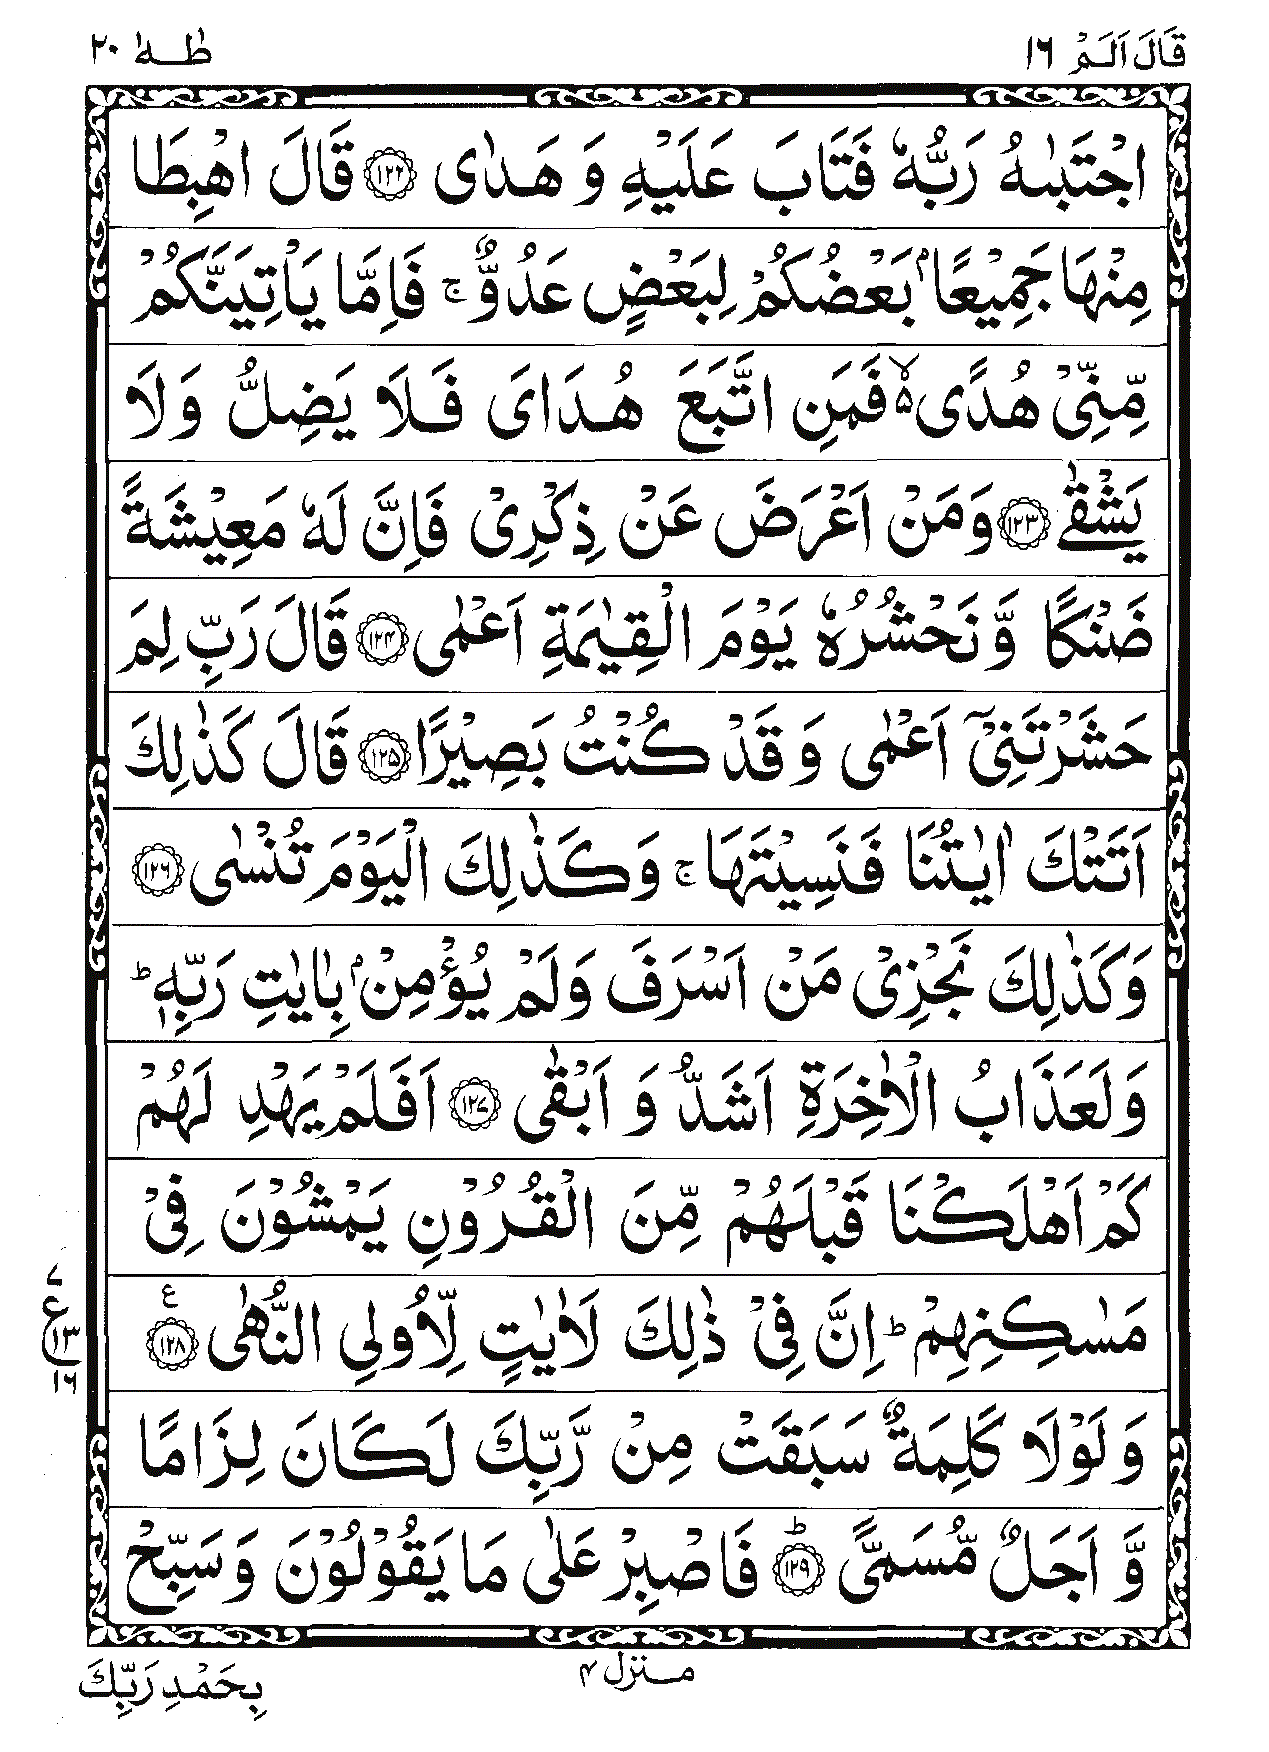 قَالَ اَلَمْ ١٦
طٰهٰ ٢٠
اجْتَبٰىهُ رَبُّهٗ فَتَابَ عَلَيْهِ وَ هَدٰى ﴿١٢٢﴾ قَالَ اهْبِطَا
مِنْهَا جَمِيْعًۢا بَعْضُكُمْ لِبَعْضٍ عَدُوٌّ ۚ فَاِمَّا يَاْتِيَنَّكُمْ
مِّنِّيْ هُدًى ۙ۬ فَمَنِ اتَّبَعَ هُدَايَ فَلَا يَضِلُّ وَلَا
يَشْقٰى ﴿١٢٣﴾ وَمَنْ اَعْرَضَ عَنْ ذِكْرِيْ فَاِنَّ لَهٗ مَعِيْشَةً
ضَنْكًا وَّ نَحْشُرُهٗ يَوْمَ الْقِيٰمَةِ اَعْمٰى ﴿١٢٤﴾ قَالَ رَبِّ لِمَ
حَشَرْتَنِيْٓ اَعْمٰى وَ قَدْ كُنْتُ بَصِيْرًا ﴿١٢٥﴾ قَالَ كَذٰلِكَ
اَتَتْكَ اٰيٰتُنَا فَنَسِيْتَهَا ۚ وَكَذٰلِكَ الْيَوْمَ تُنْسٰى ﴿١٢٦﴾
وَكَذٰلِكَ نَجْزِيْ مَنْ اَسْرَفَ وَلَمْ يُؤْمِنْۢ بِاٰيٰتِ رَبِّهٖ ؕ
وَلَعَذَابُ الْاٰخِرَةِ اَشَدُّ وَ اَبْقٰى ﴿١٢٧﴾ اَفَلَمْ يَهْدِ لَهُمْ
كَمْ اَهْلَكْنَا قَبْلَهُمْ مِّنَ الْقُرُوْنِ يَمْشُوْنَ فِيْ
مَسٰكِنِهِمْ ؕ اِنَّ فِيْ ذٰلِكَ لَاٰيٰتٍ لِّاُولِي النُّهٰى ﴿١٢٨﴾ ع
٧
ع
١٣
١٦
وَ لَوْلَا كَلِمَةٌ سَبَقَتْ مِنْ رَّبِّكَ لَكَانَ لِزَامًا
وَّ اَجَلٌ مُّسَمًّى ﴿١٢٩﴾ؕ فَاصْبِرْ عَلٰى مَا يَقُوْلُوْنَ وَسَبِّحْ
منزل ٤
بِحَمْدِ رَبِّكَ